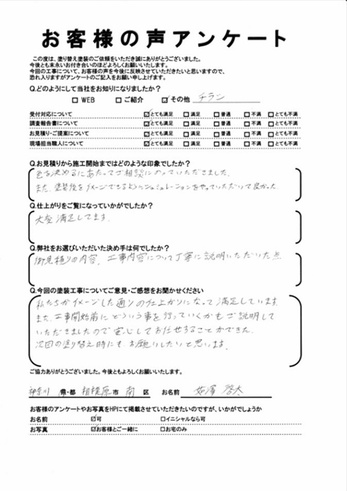 お客様の声アンケート
この度は、塗り替え塗装のご依頼をいただき誠にありがとうございました。
今後とも末永いお付き合いのほどよろしくお願いいたします。
今回の工事について、お客様の声を今後に反映させていただきたいと思いますので、
恐れ入りますがアンケートのご記入をお願い申し上げます。
Q.どのようにして当社をお知りになりましたか?
□WEB □ご紹介 ☑その他 チラシ
受付対応について ☑とても満足 □満足 □普通 □不満 □とても不満
調査報告書について ☑とても満足 □満足 □普通 □不満 □とても不満
お見積り・ご提案について ☑とても満足 □満足 □普通 □不満 □とても不満
現場担当職人について ☑とても満足 □満足 □普通 □不満 □とても不満
Q.お見積りから施工開始まではどのような印象でしたか?
色を決めるにあたってご相談にのっていただきました。
また、塗装後をイメージできるようシュミレーションをやっていただいて良かった
Q.仕上がりをご覧になっていかがでしたか?
大変満足してます。
Q.弊社をお選びいただいた決め手は何でしたか?
御見積りの内容、工事内容について丁寧に説明いただいた点
Q.今回の塗装工事についてご意見・ご感想をお聞かせください
私たちがイメージした通りの仕上がりになって満足しています。
また、工事開始前にどういう事を行っていくかもご説明して
いただきましたので安心しておまかせすることができた。
次回の塗り替え時にもお願いしたいと思います。
ご協力ありがとうございました。今後ともよろしくお願いします。
神奈川 県・都 相模原 市 南 区 お名前
お客様のアンケートやお写真をHPにて掲載させていただきたいのですが、いかがでしょうか
お名前 ☑可 □イニシャルなら可
お写真 ☑お客様とご一緒に □お宅のみ